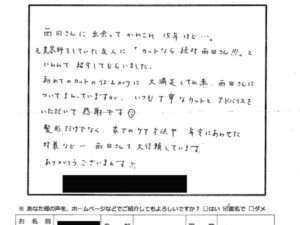 雨日さんに出会って かれこれ 15年ほど…。
元美容師をしていた友人に「カットなら 絶対 雨日さん!!!」と
いわれて 紹介してもらいました。
初めてのカットの仕上がりに 大満足して以来、雨日さんに
ついてまわっていますが、いつも丁寧なカットと アドバイスを
いただいて 感謝です
髪形だけでなく、家でのケア方法や 年令にあわせた
対策など… 雨日さんて 大信頼しています。
ありがとうございます!!
※ あなた様の声を、ホームページなどでご紹介してもよろしいですか? □はい ☑匿名で □ダメ
お 名 前